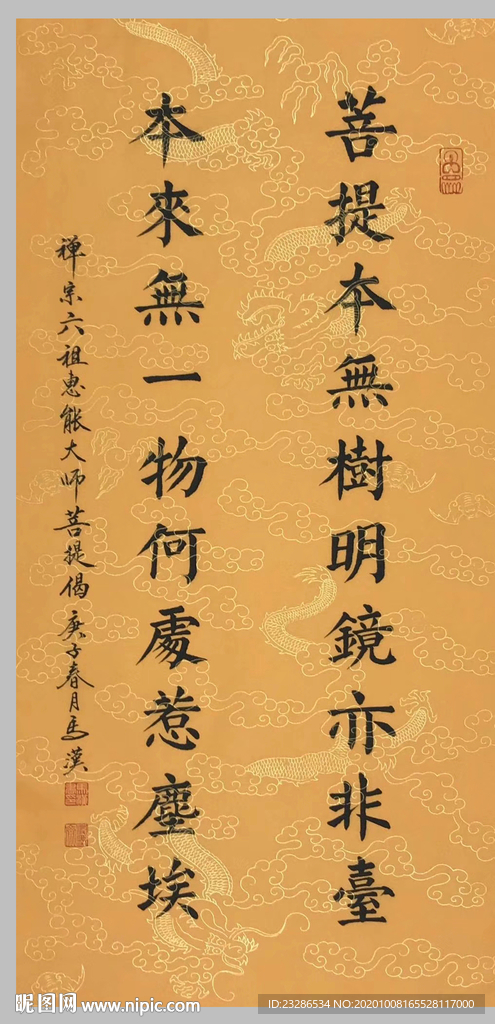 菩提本無樹明鏡亦非臺
本來無一物何處惹塵埃
禪宗六祖惠能大師菩提偈 庚子春月馬漢
昵图网 www.nipic.com
ID:23286534 NO:20201008165528117000